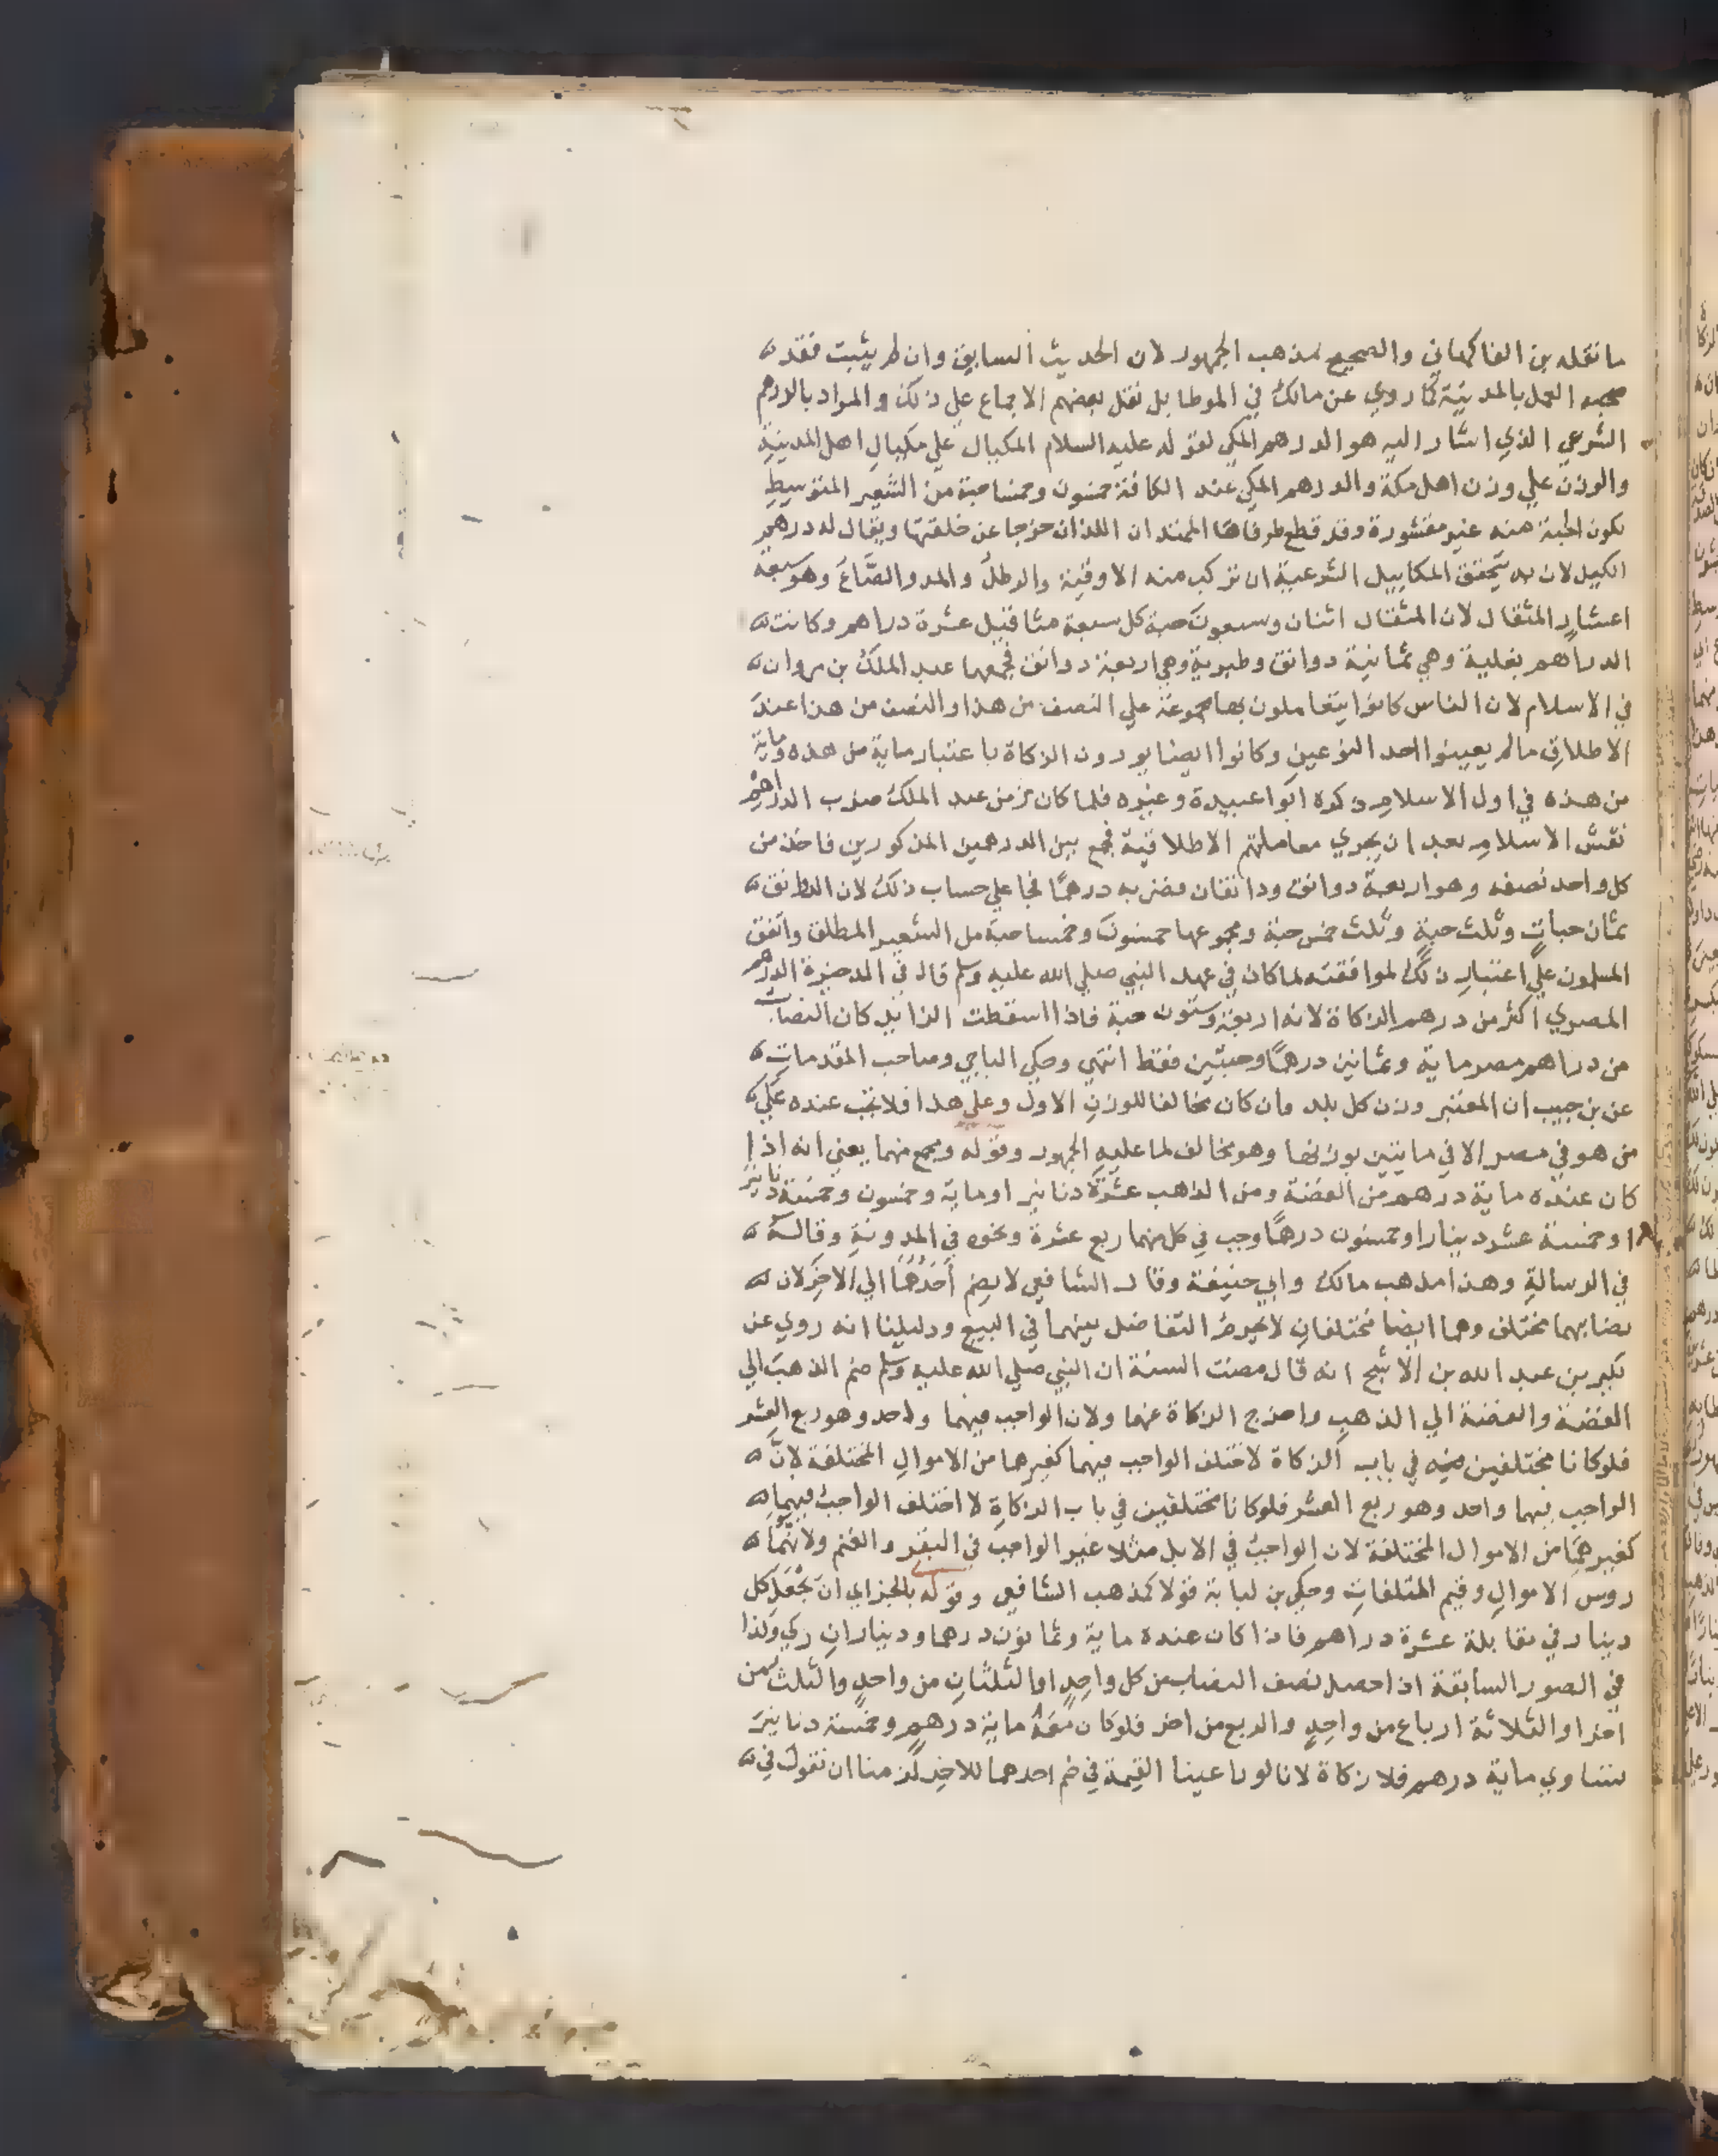 ما نقله بن الفاكهاني والصحيح مذهب الجمهور لان الحديث السابق وان لم يثبت فقد
صحبه العمل بالمدينة كما روي عن مالك في الموطا بل نقل بعضهم الاجماع علي ذلك والمراد بالدرهم
الشرعي الذي اشار اليه هو الدرهم المكي لقوله عليه السلام المكيال علي مكيال اهل المدينة
والوزن علي وزن اهل مكة والدرهم المكي عند الكافة خمسون وخمسا حبة من الشعير المتوسط
تكون الحبة منه غير مقشورة وقد قطع طرفاها الممتدان اللذان خرجا عن خلقتها ويقال له درهم
الكيل لان به يتحقق المكاييل الشرعية ان تركب منه الاوقية والرطل والمد والصاع وهو سبعة
اعشار المثقال لان المثقال اثنان وسبعون حبة كل سبعة مثاقيل عشرة دراهم وكانت
الدراهم بغلية وهي ثمانية دوانق وطبرية وهي اربعة دوانق فجمعها عبد الملك بن مروان
في الاسلام لان الناس كانوا يتعاملون بها مجموعة علي النصف من هذا والنصف من هذا عند
الاطلاق مالم يعينوا احد النوعين وكانوا ايضا يودون الزكاة باعتبار ماية من هذه وماية
من هذه في اول الاسلام ذكره ابوا عبيدة وغيره فلما كان زمن عبد الملك ضرب الدراهم
نقش الاسلام بعد ان يجري معاملتهم الاطلاقية فجمع بين الدرهمين المذكورين فاخذ من
كل واحد نصفه وهو اربعة دوانق ودانقان فضربه درهمًا فجا علي حساب ذلك لان الدانق
ثمان حبات وثلث حبة وثلث خمس حبة ومجموعها خمسون وخمسا حبة من الشعير المطلق واتفق
المسلمون علي اعتبار ذلك لموافقته لما كان في عهد النبي صلي الله عليه وسلم قال في الذخيرة الدرهم
المصري اكثر من درهم الزكاة لانه اربعة وستون حبة فاذا اسقطت الزايد كان النصاب
من دراهم مصر ماية وثمانين درهمًا وحبتين فقط انتهي وحكي الباجي وصاحب المقدمات
عن بن حبيب ان المعتبر وزن كل بلد وان كان مخالفا للوزن الاول وعلي هذا فلا تجب عنده علي
من هو في مصر الا في مايتين بوزنها وهو مخالف لما عليه الجمهور وقوله ومجمع منهما يعني انه اذا
كان عنده ماية درهم من الفضة ومن الذهب عشرة دنانير او ماية وخمسون وخمسة دنانير
او خمسة عشر دينارا وخمسون درهمًا وجب في كل منهما ربع عشرة ونحوه في المدونة وقاله
في الرسالة وهذا مذهب مالك وابي حنيفة وقال الشافعي لا يضم احدهما الي الاخر لان
نصابهما مختلف وهما ايضا مختلفان لا يحرم التفاضل بينهما في البيع ودليلنا انه روي عن
بكير بن عبد الله بن الاشج انه قال مضت السنة ان النبي صلي الله عليه وسلم ضم الذهب الي
الفضة والفضة الي الذهب واخرج الزكاة عنهما ولان الواجب فيهما واحد وهو ربع العشر
فلو كانا مختلفين في باب الزكاة لاختلف الواجب فيهما كغيرها من الاموال المختلفة لان
الواجب فيهما واحد وهو ربع العشر فلو كانا مختلفين في باب الزكاة لا اختلف الواجب فيهما
كغيرهما من الاموال المختلفة لان الواجب في الابل مثلا غير الواجب في البقر والغنم ولانهما
روس الاموال وقيم المتلفات وحكي بن لبابة قولا كمذهب الشافعي وقوله بالجزا اي ان يجعل كل
دينار في مقابلة عشرة دراهم فاذا كان عنده ماية وثمانون درهما وديناران زكي وكذا
في الصور السابقة اذا حصل نصف النصاب من كل واحد او الثلثان من واحد والثلث من
اخر او الثلاثة ارباع من واحد والربع من اخر فلو كان معه ماية درهم وخمسة دنانير
تساوي ماية درهم فلا زكاة لانا لو راعينا القيمة في ضم احدهما للاخر لزمنا ان نقول في